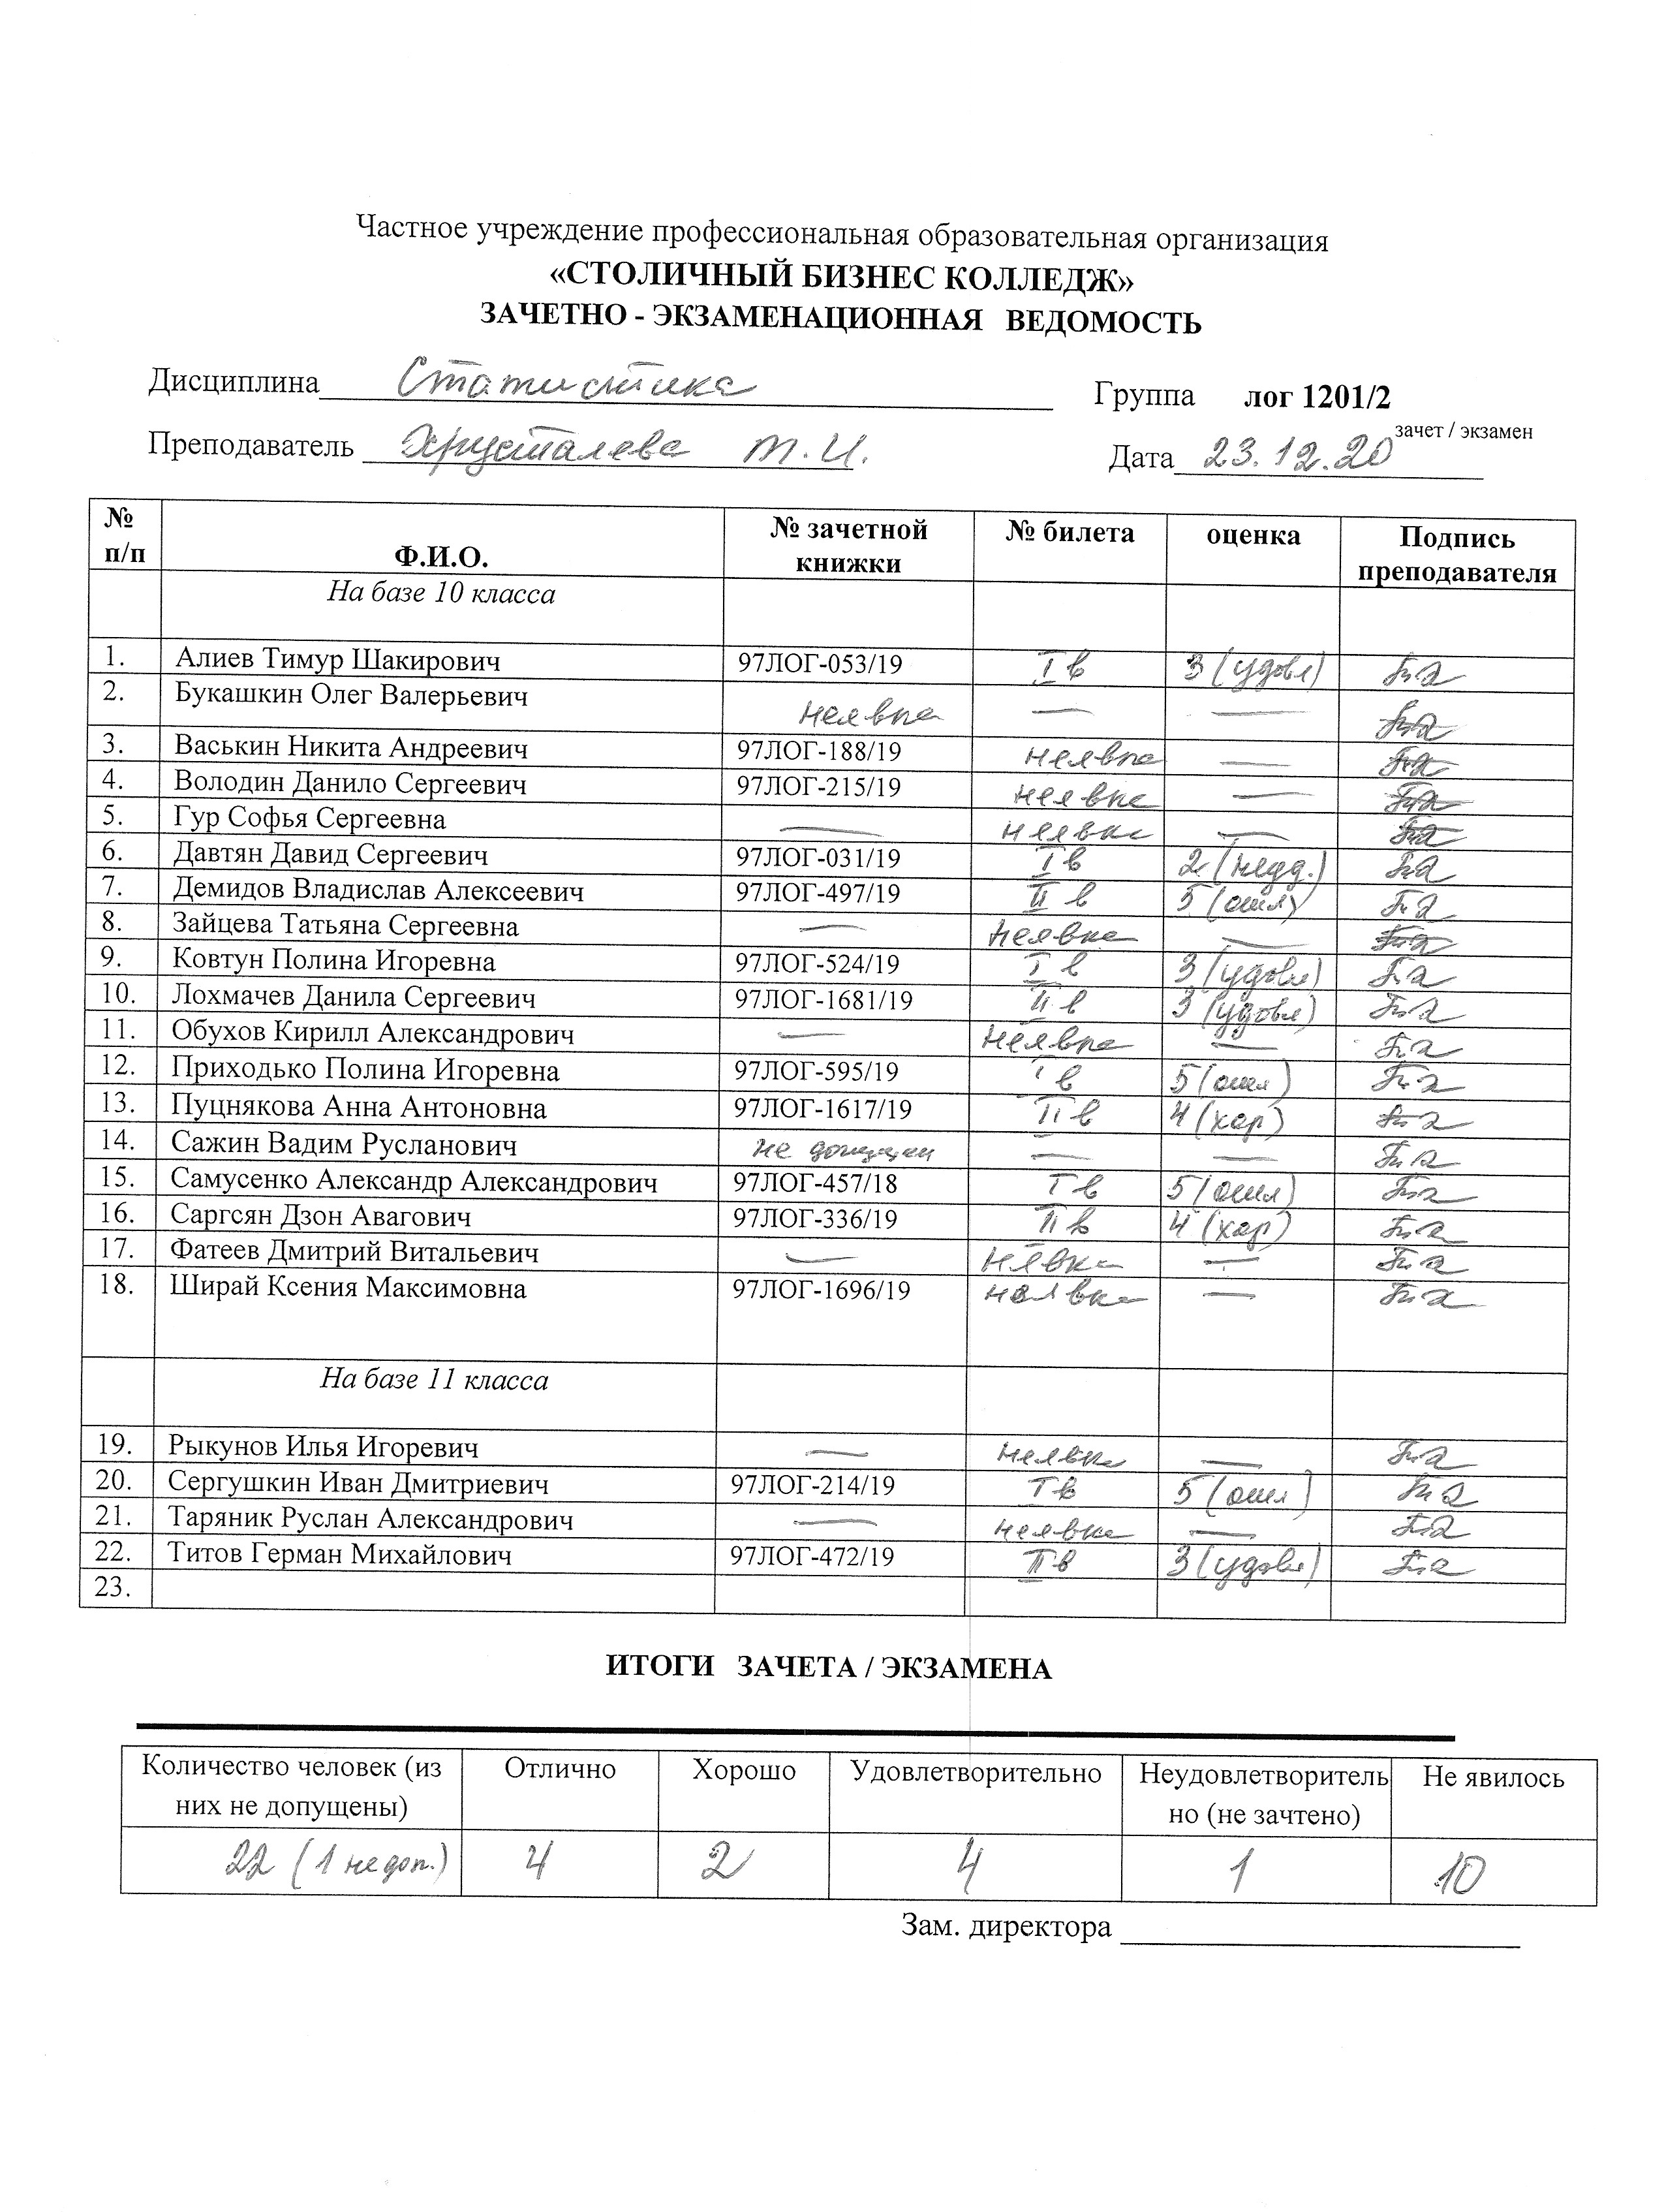 Частное учреждение профессиональная образовательная организация
«СТОЛИЧНЫЙ БИЗНЕС КОЛЛЕДЖ»
ЗАЧЕТНО - ЭКЗАМЕНАЦИОННАЯ ВЕДОМОСТЬ
Дисциплина Статистика Группа лог 1201/2
зачет / экзамен
Преподаватель Хрусталева Т.И. Дата 23.12.20
№ п/п Ф.И.О. № зачетной книжки № билета оценка Подпись преподавателя
На базе 10 класса
1. Алиев Тимур Шакирович 97ЛОГ-053/19 I в 3 (удовл)
2. Букашкин Олег Валерьевич неявка — —
3. Васькин Никита Андреевич 97ЛОГ-188/19 неявка —
4. Володин Данило Сергеевич 97ЛОГ-215/19 неявка —
5. Гур Софья Сергеевна — неявка —
6. Давтян Давид Сергеевич 97ЛОГ-031/19 I в 2
7. Демидов Владислав Алексеевич 97ЛОГ-497/19 II в 5 (отл)
8. Зайцева Татьяна Сергеевна — неявка —
9. Ковтун Полина Игоревна 97ЛОГ-524/19 I в 3 (удовл)
10. Лохмачев Данила Сергеевич 97ЛОГ-1681/19 II в 3 (удовл)
11. Обухов Кирилл Александрович — неявка —
12. Приходько Полина Игоревна 97ЛОГ-595/19 I в 5 (отл)
13. Пуцнякова Анна Антоновна 97ЛОГ-1617/19 II в 4 (хор)
14. Сажин Вадим Русланович не допущен — —
15. Самусенко Александр Александрович 97ЛОГ-457/18 I в 5 (отл)
16. Саргсян Дзон Авагович 97ЛОГ-336/19 II в 4 (хор)
17. Фатеев Дмитрий Витальевич — нявка —
18. Ширай Ксения Максимовна 97ЛОГ-1696/19 неявка —
На базе 11 класса
19. Рыкунов Илья Игоревич — неявка —
20. Сергушкин Иван Дмитриевич 97ЛОГ-214/19 I в 5 (отл)
21. Таряник Руслан Александрович — неявка —
22. Титов Герман Михайлович 97ЛОГ-472/19 II в 3 (удовл)
23.
ИТОГИ ЗАЧЕТА / ЭКЗАМЕНА
Количество человек (из них не допущены) Отлично Хорошо Удовлетворительно Неудовлетворительно (не зачтено) Не явилось
22 (1 недоп.) 4 2 4 1 10
Зам. директора